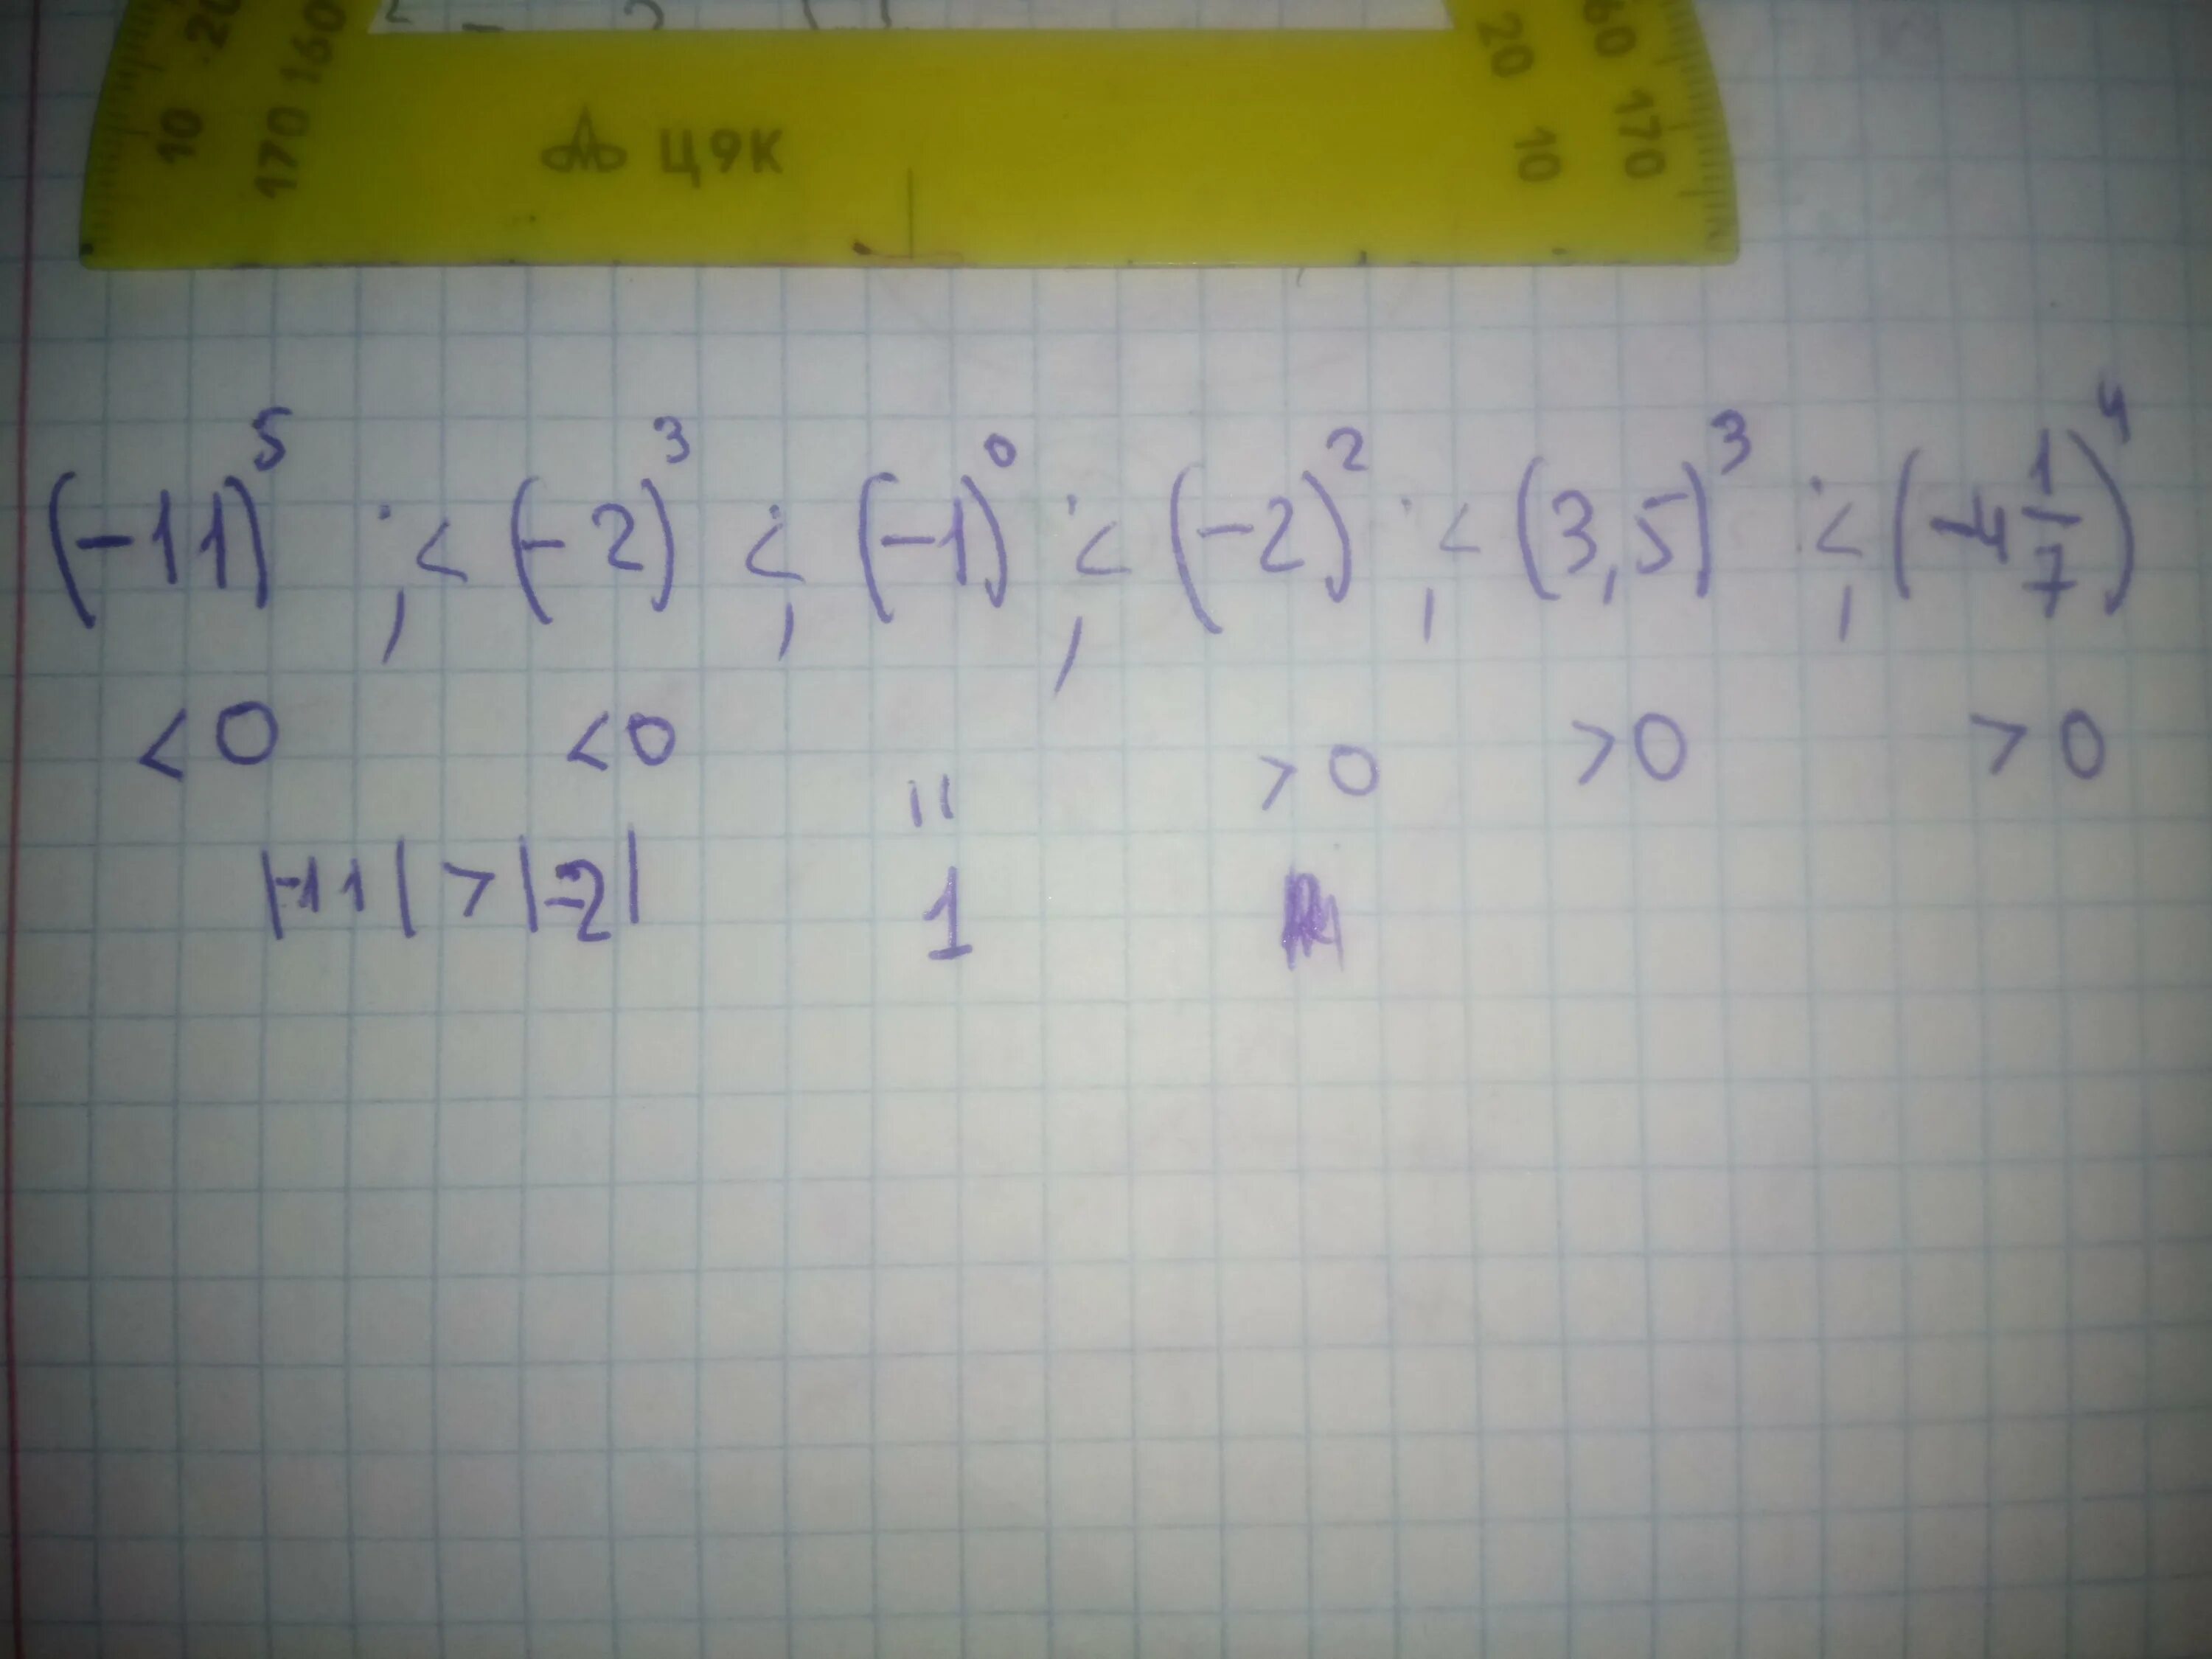 20 160 20 160
10 170 Ц9К 10 170
(-11)⁵ ; < (-2)³ ; < (-1)⁰ ; < (-2)² ; < (3,5)³ ; < (-4 1/7)⁴
< 0 < 0 > 0 > 0 > 0
|-11| > |-2| = 1